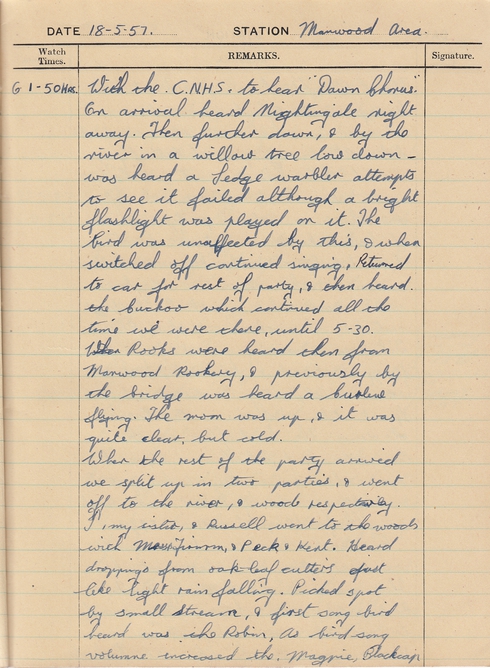 DATE 18-5-57. STATION Manwood Area.
Watch Times. REMARKS. Signature.
G 1-50 HRS. With the C.N.H.S. to hear "Dawn Chorus"
On arrival heard Nightingale right
away. Then further down, & by the
river in a willow tree low down -
was heard a Sedge warbler attempts
to see it failed although a bright
flashlight was played on it. The
bird was unaffected by this, & when
switched off continued singing, Returned
to car for rest of party, & then heard.
the cuckoo which continued all the
time we were there, until 5-30.
Rooks were heard then from
Manwood Rookery, & previously by
the bridge was heard a curlew
flying. The moon was up, & it was
quite clear, but cold.
When the rest of the party arrived
we split up in two parties, & went
off to the river, & woods respectively.
I, my sister, & Russell went to the woods
with & Peck & Kent. Heard
droppings from oak-leaf cutters just
like light rain falling. Picked spot
by small stream, & first song bird
heard was the Robin, As bird song
volumne increased the. Magpie, Blackcap